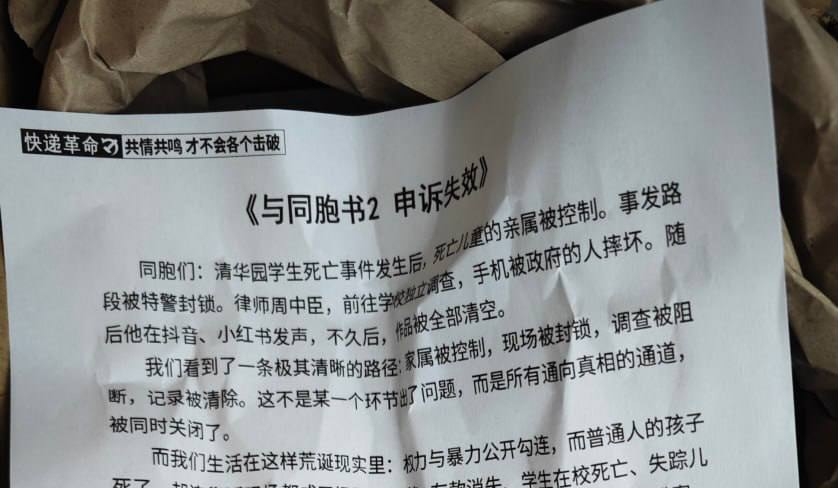 快递革命 共情共鸣 才不会各个击破
《与同胞书2 申诉失效》
同胞们：清华园学生死亡事件发生后，死亡儿童的亲属被控制。事发路
段被特警封锁。律师周中臣，前往学校独立调查，手机被政府的人摔坏。随
后他在抖音、小红书发声，不久后，作品被全部清空。
我们看到了一条极其清晰的路径：家属被控制，现场被封锁，调查被阻
断，记录被清除。这不是某一个环节出了问题，而是所有通向真相的通道，
被同时关闭了。
而我们生活在这样荒诞现实里：权力与暴力公开勾连，而普通人的孩子
死了 学生在校死亡、失踪儿